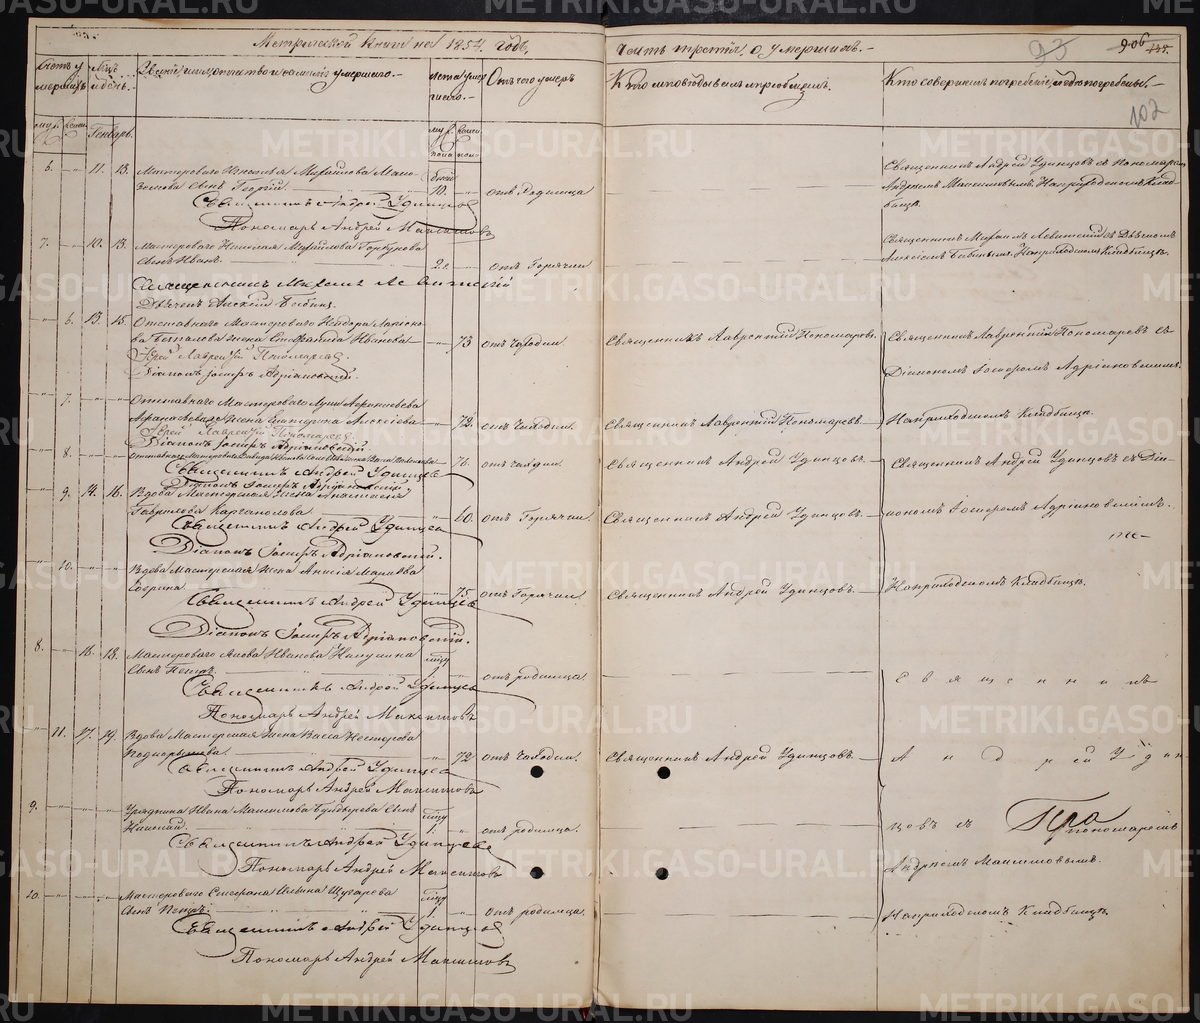 Метрической книги на 1854. годъ,
Часть третія о умершихъ.
93
906
102
Счетъ умершихъ
Мѣс. и день.
Званіе, имя, отчество и фамилія умершаго.
Лета умершаго.
Отъ чего умеръ
Кто исповѣдывалъ и пріобщалъ.
Кто совершалъ погребеніе, и гдѣ погребены.
Генварь.
6. 11. 13. Мастероваго Игнатья Михайлова
сынъ Георгій 10. отъ Родимца
Священникъ Андрей Удинцовъ
Пономарь Андрей Максимовъ
Священникъ Андрей Удинцовъ съ Пономаремъ
Андреемъ Максимовымъ. На приходскомъ Кладбищѣ.
7. 10. 13. Мастероваго Николая Михайлова Горбунова
сынъ Иванъ. 2. отъ Горячки
Священникъ Михаилъ Левитскій
Дьячекъ Алексѣй Бабинъ.
Священникъ Михаилъ Левитскій съ Дьячкомъ
Алексѣемъ Бабинымъ. На приходскомъ Кладбищѣ.
6. 13. 15. Отставнаго Мастероваго
жена Степанида Иванова 73 отъ чахотки.
Іерей Лаврентій Пономаревъ.
Діаконъ Іосифъ Адріановскій.
Священникъ Лаврентій Пономаревъ.
Священникъ Лаврентій Пономаревъ съ
Діакономъ Іосифомъ Адріановскимъ.
7. Отставнаго Мастероваго
жена Екатерина Алексѣева 72. отъ чахотки.
Іерей Лаврентій Пономаревъ
Діаконъ Іосифъ Адріановскій
Священникъ Лаврентій Пономаревъ.
На приходскомъ Кладбищѣ.
8. 76. отъ чахотки.
Священникъ Андрей Удинцовъ
Діаконъ Іосифъ Адріановскій
Священникъ Андрей Удинцовъ.
Священникъ Андрей Удинцовъ съ Діа-
кономъ Іосифомъ Адріановскимъ.
9. 14. 16. Вдова Мастерская жена Анастасія
Гаврилова Карпаполова. 60. отъ Горячки.
Священникъ Андрей Удинцовъ
Діаконъ Іосифъ Адріановскій.
Священникъ Андрей Удинцовъ.
10. Вдова Мастерская жена Анисія
75. отъ Горячки.
Священникъ Андрей Удинцовъ
Діаконъ Іосифъ Адріановскій.
Священникъ Андрей Удинцовъ.
На приходскомъ Кладбищѣ.
8. 16. 18. Мастероваго Якова Иванова
сынъ Петръ. отъ родимца
Священникъ Андрей Удинцовъ
Пономарь Андрей Максимовъ
Священникъ
11. 17. 19. Вдова Мастерская жена Васса Нестерова
Подкорытова. 72 отъ чахотки.
Священникъ Андрей Удинцовъ
Пономарь Андрей Максимовъ
Священникъ Андрей Удинцовъ.
Андрей Удин
9. Урядника Ивана Максимова сынъ
Николай. 1. отъ родимца.
Священникъ Андрей Удинцовъ
Пономарь Андрей Максимовъ
цовъ съ пономаремъ
Андреемъ Максимовымъ.
10. Мастероваго Стефана Ильина Щугарева
сынъ Петръ. 1. отъ родимца.
Священникъ Андрей Удинцовъ
Пономарь Андрей Максимовъ
На приходскомъ Кладбищѣ.
METRIKI.GASO-URAL.RU